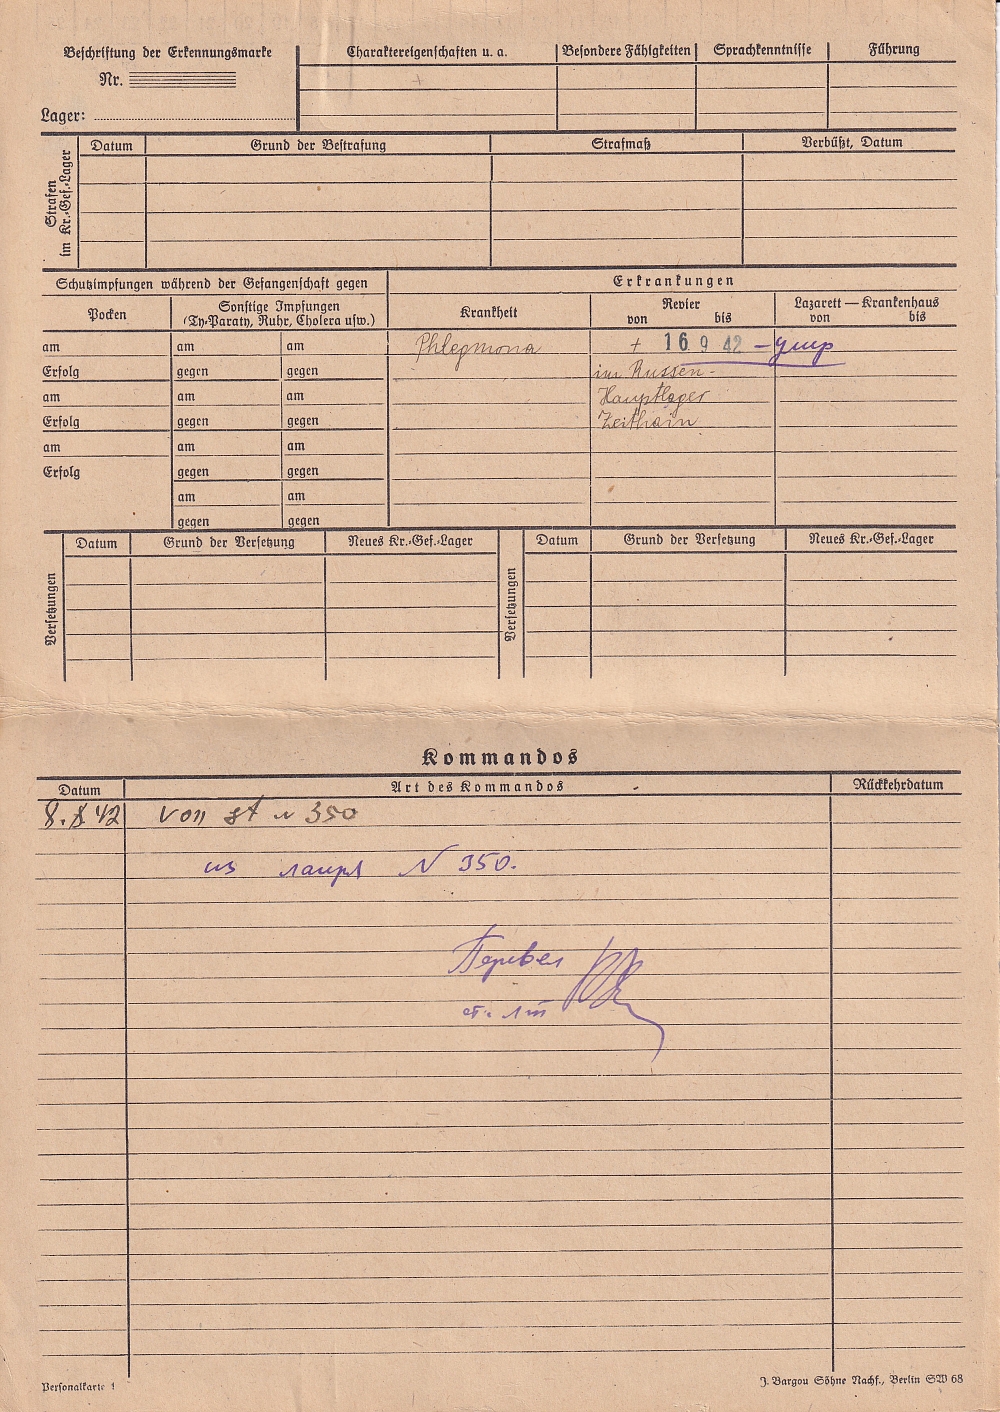 Beschriftung der Erkennungsmarke
Nr.
Lager:
Charaktereigenschaften u. a.
Besondere Fähigkeiten
Sprachkenntnisse
Führung
Strafen
im Kr.-Gef.-Lager
Datum
Grund der Bestrafung
Strafmaß
Verbüßt, Datum
Schutzimpfungen während der Gefangenschaft gegen
Erkrankungen
Pocken
Sonstige Impfungen
(Ty-Paraty, Ruhr, Cholera usw.)
Krankheit
Revier
von bis
Lazarett — Krankenhaus
von bis
am am am Phlegmona + 16 9 42 – умер
Erfolg gegen gegen im Russen-
am am am Hauptlager
Erfolg gegen gegen Zeithain
am am am
Erfolg gegen gegen
am am
gegen gegen
Versetzungen
Datum Grund der Versetzung Neues Kr.-Gef.-Lager
Versetzungen
Datum Grund der Versetzung Neues Kr.-Gef.-Lager
Kommandos
Datum Art des Kommandos Rückkehrdatum
8. 8 42 von st N 350
из лагеря N 350.
Перевел
ст. л-т
Personalkarte 1
J. Bargou Söhne Nachf., Berlin SW 68